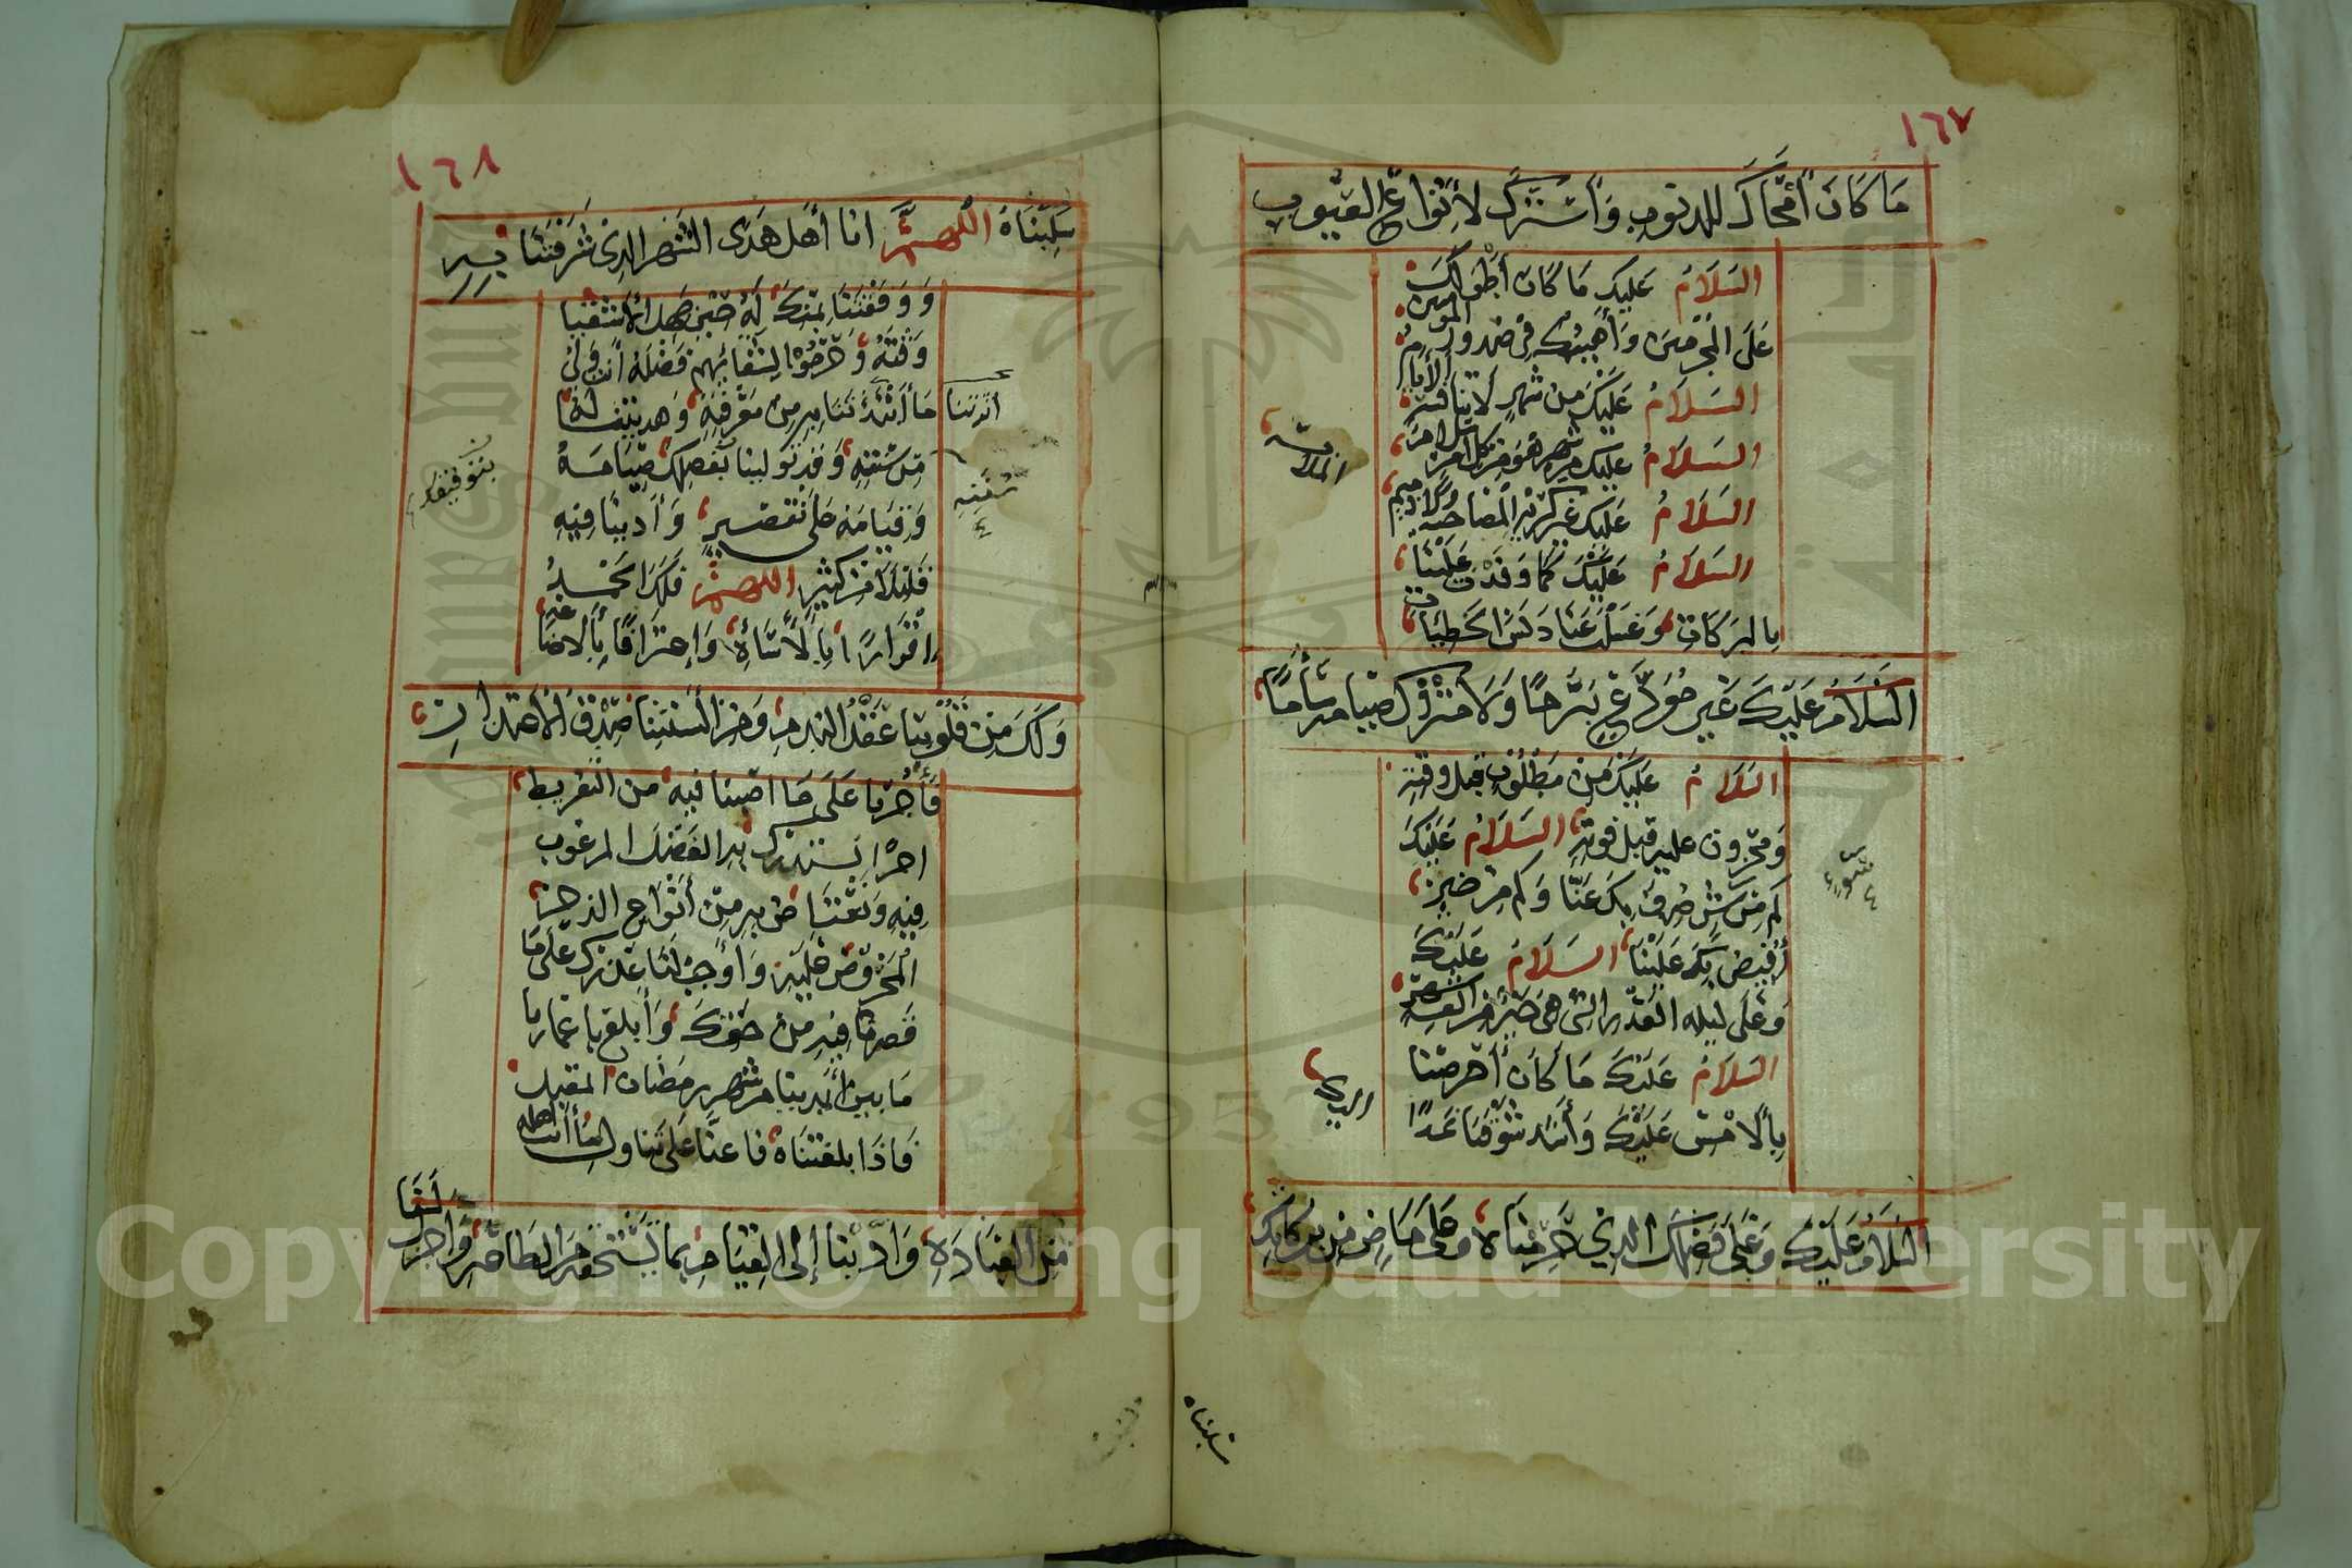 ١٦٧
مَا كَانَ أَمْحَاكَ للذنوبِ وَأَسْتَرَكَ لأَنْوَاعِ العُيُوبِ
السَلَامُ عَلَيكَ مَا كَانَ أَطْوَلَكَ
عَلَى المُجْرِمينَ وَأَهْيَبَكَ فِى صُدورِ المومنين
السَلَامُ عَلَيْكَ مِنْ شَهْرٍ لَا تنافسهُ الأيام
السَلَامُ عليكَ من شهر هو من كل امر سلام
السَلَامُ عَلَيكَ غير كريه المُصَاحبه ولا ذميم
الملابسه
السَلَامُ عَلَيْكَ كَمَا وَفَدْتَ عَلَيْنَا
بالبَرَكَاتِ وَغَسَلْتَ عَنَا دَنَسَ الخَطِيئَات
السَلَامُ عَلَيْكَ غَيْرِ مُوَدَّعٍ بَرَمًا وَلَا مَتْرُوكٍ صِيَامه سَأَمًا
السَلَامُ عَلَيْكَ مِنْ مَطْلُوبٍ قبل وقتِه
وَمحْزون عليه قبل فوته السَلَامُ عَلَيْكَ
كم مِنْ سُوءٍ صُرِفَ بِكَ عَنّا وَكم من خير
سوء
أُفيضَ بِكَ عَلَيْنَا السَلَامُ عَلَيْكَ
وَعَلَى ليله القَدْر التى هى خَيْر من الف شهر
السَلَامُ عَلَيْكَ مَا كَانَ أَحْرصَنا
بِالأمْسِ عَلَيْكَ وَأَشَد شَوْقَنَا غَدًا اليك
السَلَامُ عَلَيْكَ وَعَلَى فَضْلِكَ الذِي حُرِمْنَاهُ وعَلَى مَاضٍ مِنْ بَرَكَاتِكَ
سلبناه
١٦٨
سُلِبْنَاهُ اللهم انا أَهل هَذَى الشَهر الذِى شَرَّفْتَنَا بِهِ
وَوَفَقْتَنَا بِمَنِّكَ لَهُ حِينَ جَهِلَ الأشقيا
وَقْتَهُ وَحُرِمُوا لِشَقَائِهم فَضْلَهُ أَنتَ وَلى
مَا أَثَرْتَنَا بِهِ مِنْ مَعْرِفَتِهِ وَهديتنا لَهُ
أثرتنا
مِنْ سُنَّتِهِ وَقد تَولينا بفضلك صِيَامَهُ
سُنَّتِهِ
بتوفيقك
وَقِيَامَهُ عَلَى تَقصير وَأَدينَا فِيهِ
قَليلًا مِنْ كثيرٍ اللهم فَلَكَ الحَمْدُ
إقْرَارًا بِالأسَاءَةِ وَإعتِرَافًا بِالأضاعه
وَلَكَ مِنْ قُلُوبِنَا عَقْدُ الندمِ وَمن أَلسنَتِنَا صِدْقُ الأعتذار
فَأْجُرْنَا عَلَى مَا اصَبنا فيه من التفريط
اجْرًا نَستدرك بهِ الفَضْلَ المرغوب
فِيهِ وَنَعْتَا ضُ بِهِ مِنْ أَنْوَاعِ الذخر
المَحْرُوصِ عَلَيْهِ وَأوجب لَنَا عذرك عَلَى مَا
قَصرنا فِيهِ مِنْ حَقِّكَ وَأبلغ باعمارنا
مَا بين أَيدينا من شَهرِ رَمَضَان المقبل
فَاذَا بلغتنَاه فاعنّا عَلَى تناول مَا أنت اهله
مِنَ العِبَادَةِ وَادّنا إِلى القِيَامِ بما يَسْتَحِقهُ مِنَ الطَاعَةِ وَاجر لَنَا